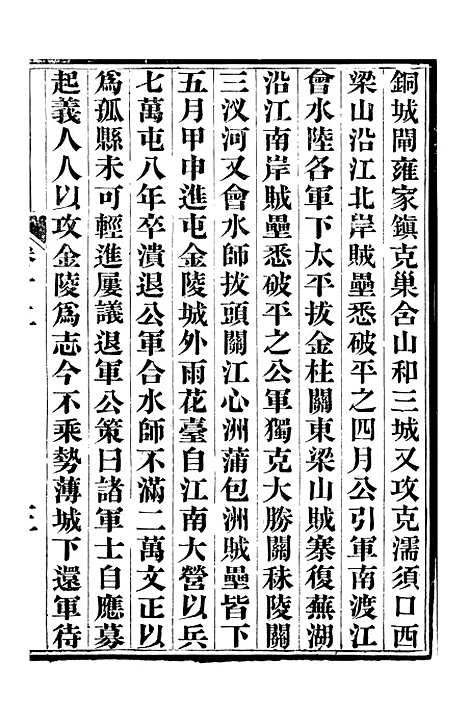 銅城閘雍家鎮克巢含山和三城又攻克濡須口西
梁山沿江北岸賊壘悉破平之四月公引軍南渡江
會水陸各軍下太平拔金柱關東梁山賊寨復蕪湖
沿江南岸賊壘悉破平之公軍獨克大勝關秣陵關
三汊河又會水師拔頭關江心洲蒲包洲賊壘皆下
五月甲申進屯金陵城外雨花臺自江南大營以兵
七萬屯八年卒潰退公軍合水師不滿二萬文正以
爲孤縣未可輕進屢議退軍公策曰諸軍士自應募
起義人人以攻金陵爲志今不乘勢薄城下還軍待